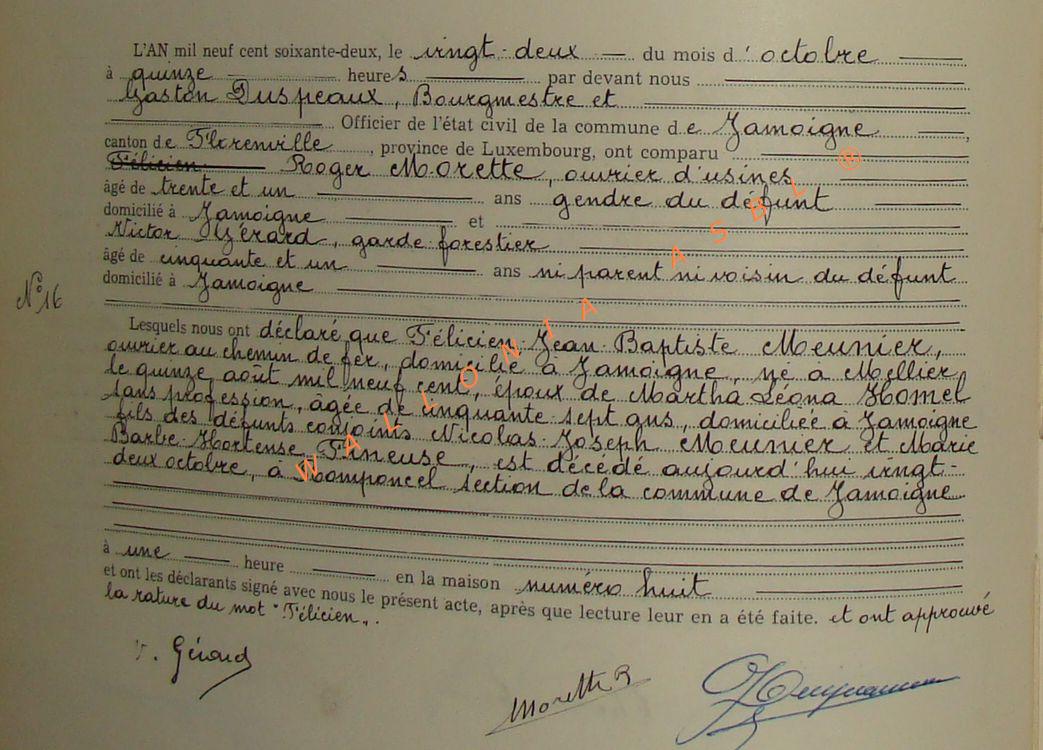 L'AN mil neuf cent soixante-deux, le vingt-deux du mois d'octobre
à quinze heures par devant nous
Gaston Duspeaux, Bourgmestre et
Officier de l'état civil de la commune de Jamoigne,
canton de Florenville, province de Luxembourg, ont comparu
Félicien Roger Morette, ouvrier d'usines
âgé de trente et un ans gendre du défunt
domicilié à Jamoigne et
Victor Gérard, garde forestier
âgé de cinquante et un ans ni parent ni voisin du défunt
domicilié à Jamoigne
N° 16
Lesquels nous ont déclaré que Félicien-Jean-Baptiste Meunier,
ouvrier au chemin de fer, domicilié à Jamoigne, né à Mellier,
le quinze août mil neuf cent, époux de Martha Léona Homel
sans profession, âgée de cinquante-sept ans, domiciliée à Jamoigne
fils des défunts conjoints Nicolas-Joseph Meunier et Marie
Barbe-Hortense Fineuse, est décédé aujourd'hui vingt-
deux octobre, à Romponcel section de la commune de Jamoigne
à une heure en la maison numéro huit
et ont les déclarants signé avec nous le présent acte, après que lecture leur en a été faite. et ont approuvé
la rature du mot "Félicien".
V. Gérard
Morette R
WALLONIA ASBL ®